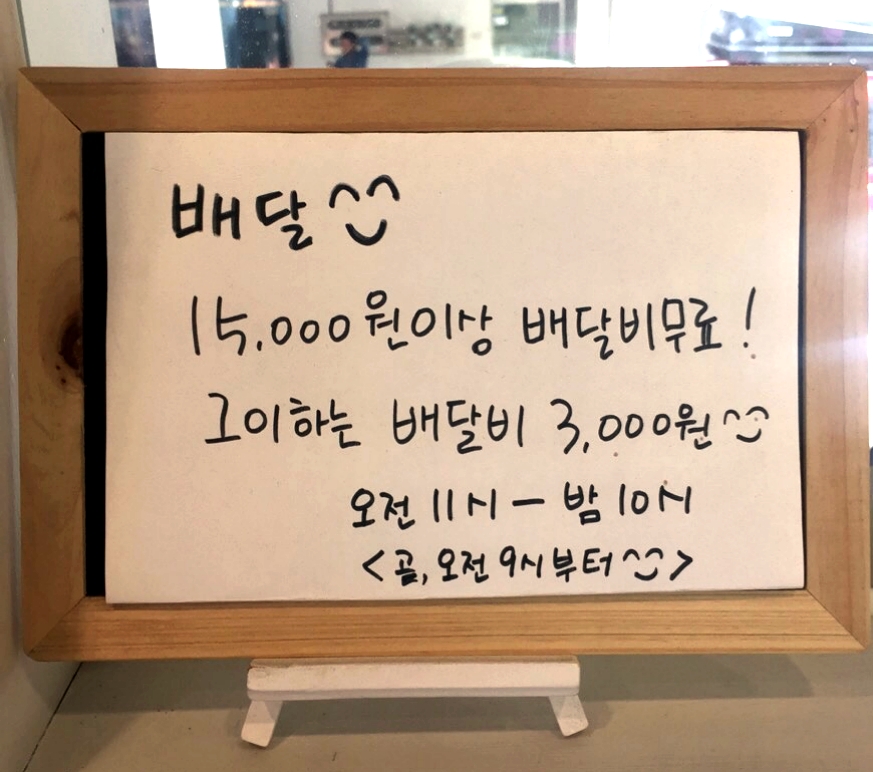 배달 ^^
15,000원이상 배달비무료!
그이하는 배달비 3,000원^^
오전 11시 - 밤 10시
<곧, 오전 9시부터^^>